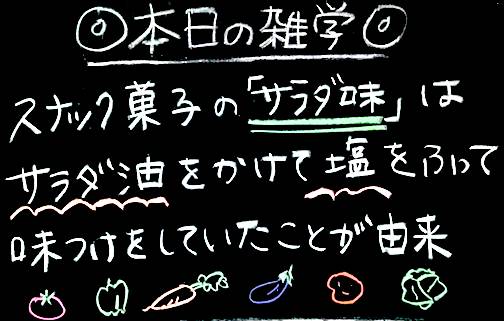 ◎本日の雑学◎
スナック菓子の「サラダ味」は
サラダ油をかけて塩をふって
味つけをしていたことが由来